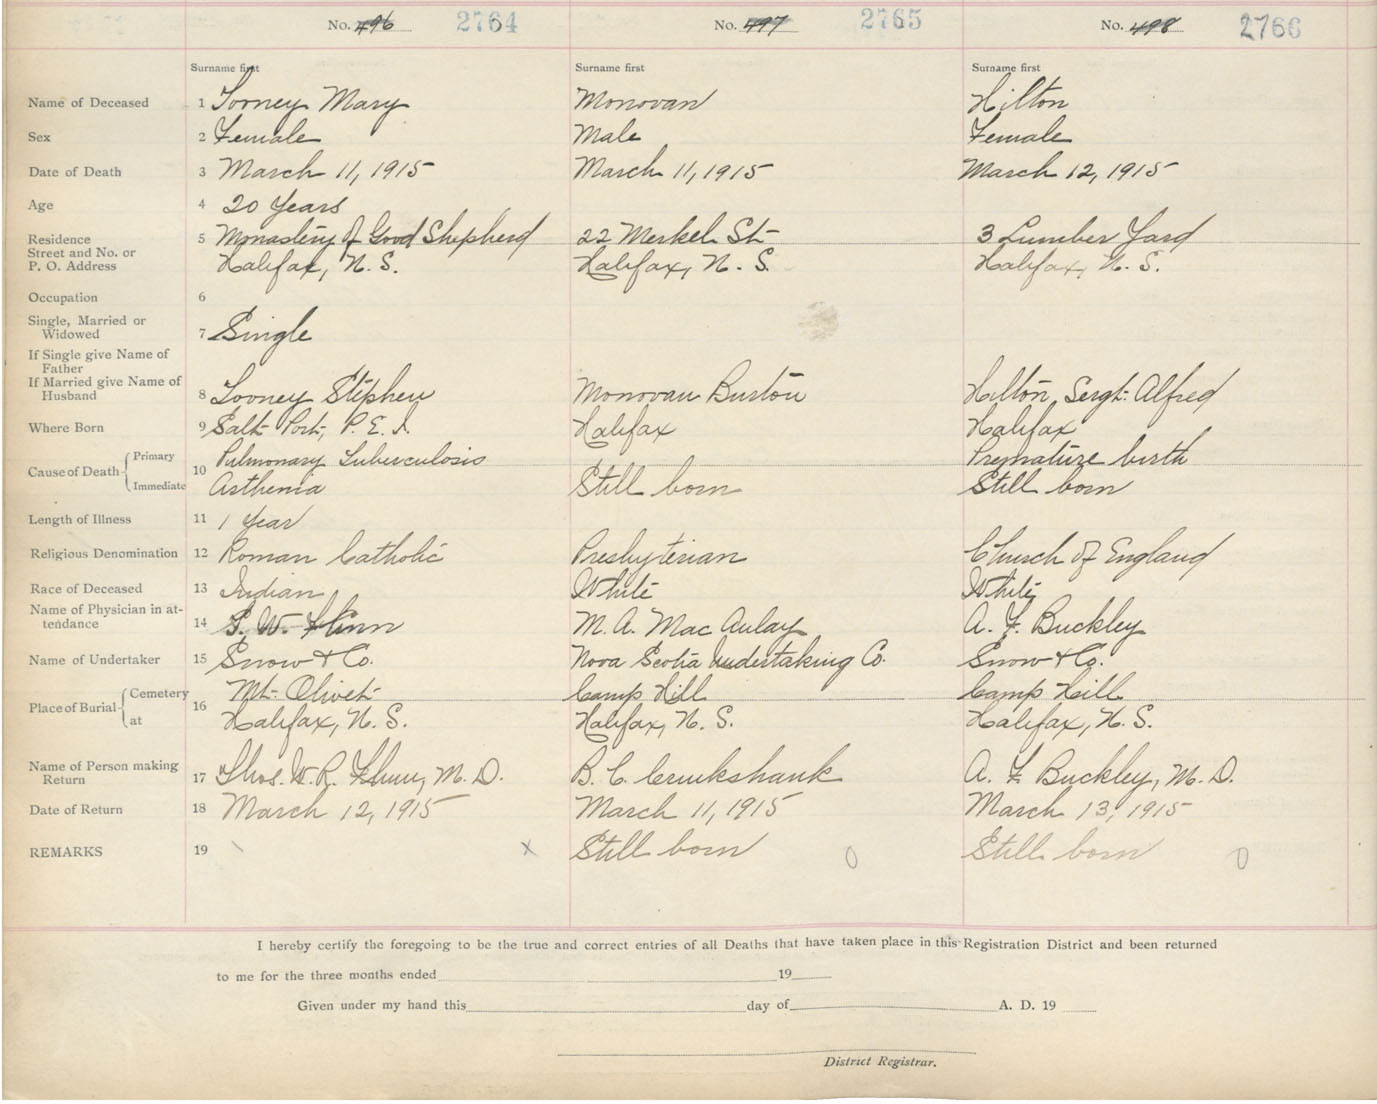 No. 496 2764 No. 497 2765 No. 498 2766
Surname first Surname first Surname first
Name of Deceased 1 Tooney Mary Monovan Hilton
Sex 2 Female Male Female
Date of Death 3 March 11, 1915 March 11, 1915 March 12, 1915
Age 4 20 Years
Residence 5 Monastery of Good Shepherd 22 Merkel St 3 Lumber Yard
Street and No. or
P. O. Address Halifax, N. S. Halifax, N. S. Halifax, N. S.
Occupation 6
Single, Married or
Widowed 7 Single
If Single give Name of
Father
If Married give Name of
Husband 8 Tooney Stephen Monovan Burton Hilton, Sergt. Alfred
Where Born 9 Salt Port, P. E. I. Halifax Halifax
Cause of Death Primary 10 Pulmonary Tuberculosis Premature birth
Immediate Asthenia Still born Still born
Length of Illness 11 1 Year
Religious Denomination 12 Roman Catholic Presbyterian Church of England
Race of Deceased 13 Indian White White
Name of Physician in at-
tendance 14 T. W. Flinn M. A. MacAulay A. F. Buckley
Name of Undertaker 15 Snow & Co. Nova Scotia Undertaking Co. Snow & Co.
Place of Burial Cemetery 16 Mt. Olivet Camp Hill Camp Hill
at Halifax, N. S. Halifax, N. S. Halifax, N. S.
Name of Person making
Return 17 Thos. W. R. Flinn, M. D. B. C. Cruikshank A. F Buckley, M. D.
Date of Return 18 March 12, 1915 March 11, 1915 March 13, 1915
REMARKS 19 x Still born 0 Still born 0
I hereby certify the foregoing to be the true and correct entries of all Deaths that have taken place in this Registration District and been returned
to me for the three months ended 19
Given under my hand this day of A. D. 19
District Registrar.